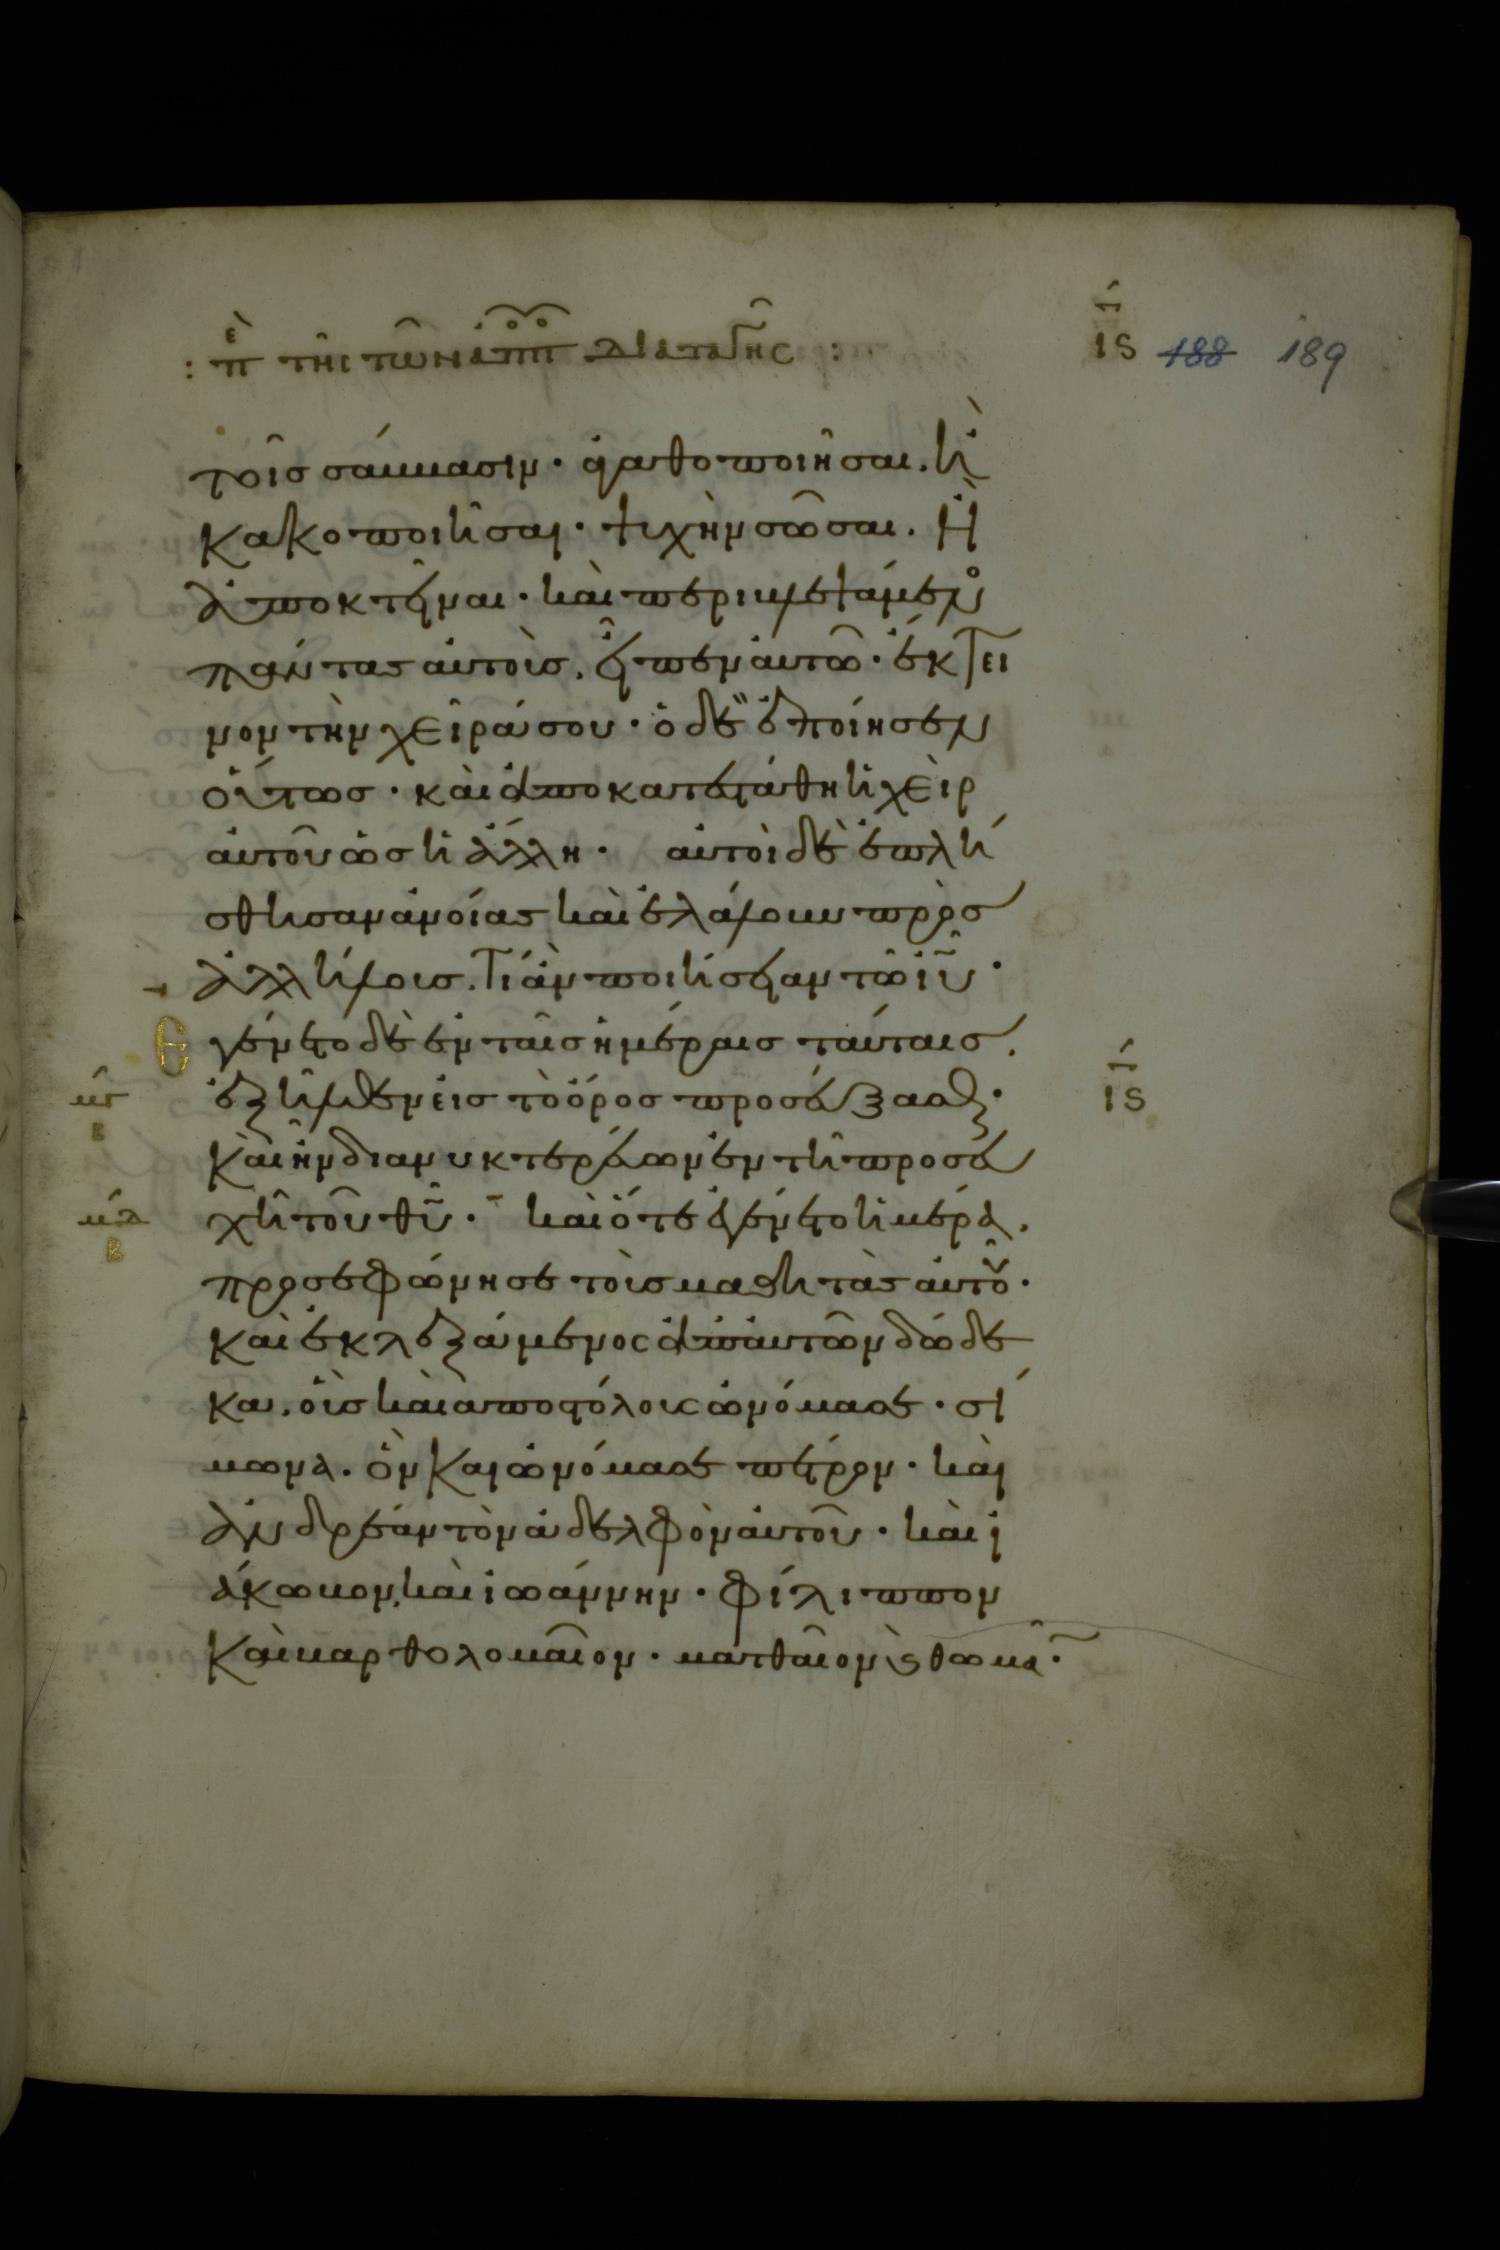 : π ὲ τῆς τῶν ἀπ̅π̅ διαταγῆς :
ις 188 189
τοῖς σάββασιν· ἀγαθοποιῆσαι. ἢ
κακοποιῆσαι· ψυχὴν σῶσαι. ἢ
ἀποκτεῖναι· καὶ περιβλεψάμενο
πάντας αὐτοὺς. εἶπεν αὐτῶ· ἔκτει
νον τὴν χεῖρά σου· ὁ δὲ ἐποίησεν
οὕτως· καὶ ἀποκατεστάθη ἡ χεὶρ
αὐτοῦ ὡς ἡ ἄλλη· αὐτοὶ δὲ ἐπλή
σθησαν ἀνοίας καὶ ἐλάλουν πρὸς
ἀλλήλους. τί ἂν ποιήσειαν τῶ ἰ̅υ̅·
Ε γένετο δὲ ἐν ταῖς ἡμέραις ταύταις.
ἐξῆλθεν εἰς τὸ ὄρος προσεύξασθαι·
ις
μγ
β
καὶ ἦν διανυκτερεύων ἐν τῆ προσευ
χῆ τοῦ θ̅υ̅· καὶ ὅτε ἐγένετο ἡμέρα.
μδ
β
προσεφώνησε τοὺς μαθητὰς αὐτοῦ·
καὶ ἐκλεξάμενος ἀπ' αὐτῶν δώδε
κα. οὓς καὶ ἀποστόλους ὠνόμασε· σί
μωνα. ὃν καὶ ὠνόμασε πέτρον· καὶ
ἀνδρέαν τὸν ἀδελφὸν αὐτοῦ· καὶ ἰ
άκωβον, καὶ ἰωάννην· φίλιππον
καὶ βαρθολομαῖον· ματθαῖον ϗ θωμᾶ·